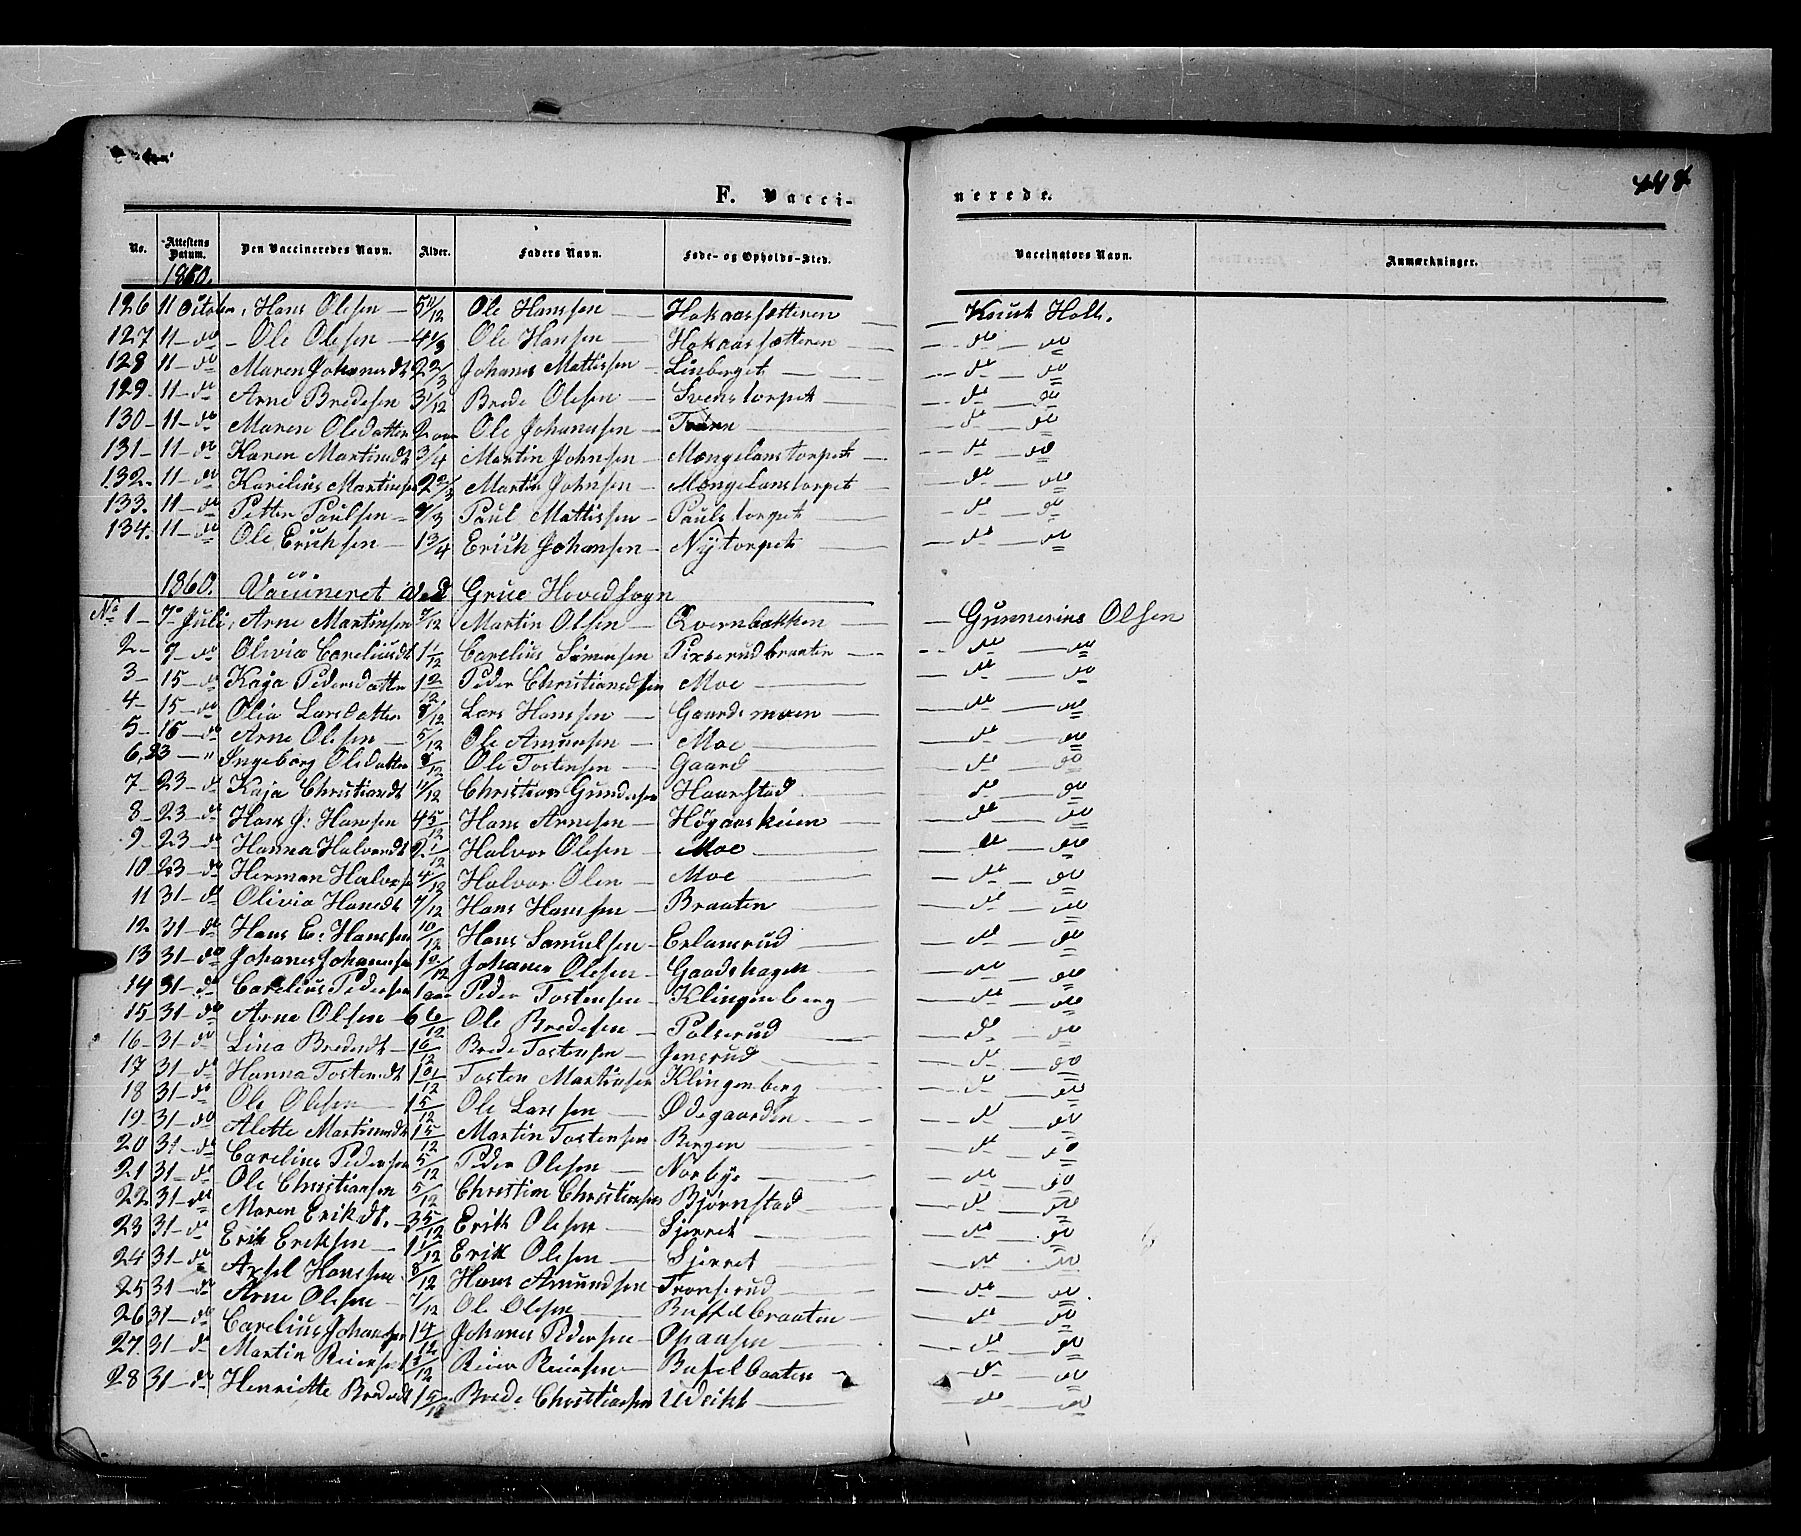 448
F. Vacci- nerede.
No. Attestens Datum. Den Vaccineredes Navn. Alder. Faders Navn. Føde- og Opholds-Sted. Vaccinators Navn. Anmærkninger.
1860.
126 11 October, Hans Olesen — 5 10/12 Ole Hanssen — Hokaassætteren — Knut Holt.
127 11 — do — Ole Olesen — 4 1/3 Ole Hansen — Hokaassætteren — do — do
128 11 — do Maren Johanesdt 2 2/3 Johanes Mattissen — Linberget — do — do
129. 11 — do Arne Bredesen 3 1/12 Brede Olesen — Svenstorpet — do — do
130 — 11 — do Maren Olsdatter 2 aar Ole Johannsen — — do — do
131 — 11 — do Karen Martinsdt 3/4 Martin Johnsen — Mængelanstorpet — do — do
132. 11 — do Karelius Martinsen 2 2/3 Martin Johnsen — Mængelanstorpet — do — do
133. 11 — do Petter Paulsen — /3 Paul Mattissen — Paulstorpet — do — do
134. 11 — do Ole Erichsen — 1 3/4 Erich Johansen — Nytorpet — do — do
1860. Vaccineret ved Grue Hovedsogn
No 1 — 7 Juli, Arne Martinsen 7/12 Martin Olsen — Qvernbækken — Gunnerius Olsen
2 — 7 — do Olivia Careliusdt 1 1/12 Carelius Simensen Pixerudbraaten — do — do
3 — 15 — do Kaja Pedersdatter 1 2/12 Peder Christiansen Moe — do — do
4 — 15 — do Olia Larsdatter 8/12 Lars Hanssen — Gaardsmoen — do — do
5 — 15 — do Arne Olesen — 5/12 Ole Amunsen — Moe — do — do
6. 23 — " Ingeborg Olsdatter 8/12 Ole Tostensen — Gaard — do — do
7 — 23 — do Kaja Christiansdt 11/12 Christian Gundersen Haarstad — do — do
8 — 23 — do Hans J. Hanssen 4 5/12 Hans Arnesen — Høgaaskuien — do — do
9 — 23 — do Hanna Halvorsdt 2 1/12 Halvor Olesen — Moe — do — do
10 — 23 — do Herman Halvorsen 4/12 Halvor Olen — Moe — do — do
11 31 — do Olivia Hansdt 7/12 Hans Hanssen — Braaten — do — do
12 — 31 — do Hans E. Hanssen 10/12 Hans Samulsen — Erlansrud — do — do
13 31 — do Johanes Johannesen 1 2/12 Johanes Olesen — Gaardshagen — do — do
14 31 — do Carelius Pedersen 1 aar Peder Tostensen — Klingenberg — do — do
15 — 31 — do Arne Olsen — 6 6/12 Ole Bredesen — Polserud — do — do
16 — 31 — do Lina Bredesdt — 1 6/12 Brede Tostensen — Jensrud — do — do
17 31 — do Hanna Tostensdt 1 01/12 Tosten Martinsen Klingenberg — do — do
18 31 — do Ole Olesen — 1 5/12 Ole Larssen — Ødegaarden — do — do
19 — 31 — do Alette Martinsdt 1 5/12 Martin Tostensen — Bergen — do — do
20 31 — do Carelius Pedersen 5/12 Peder Olesen — Norbye — do — do
21 31 — do Ole Christiansen 5/12 Christian Christiansen Bjørnstad — do — do
22 31 — do Maren Eriksdt. — 3 5/12 Erik Olesen — Sjerret — do — do
23 31 — do Erik Eriksen — 1 1/12 Erik Olesen — Sjerret — do — do
24 31 — do Axsel Hanssen 8/12 Hans Amundsen — Tronserud — do — do
25 31 — do Arne Olesen — 7/12 Ole Olesen — Buffelbraaten — do — do
26 31 — do Carelius Johansen 1 4/12 Johanes Pedersen — Opausen — do — do
27 31 — do Martin Reiersen 1 5/12 Reier Reiersen — Bufelbaaten — do — do
28 31 — do Henriette Bredesdt 1 5/12 Brede Christiansen Udsikt — do — do